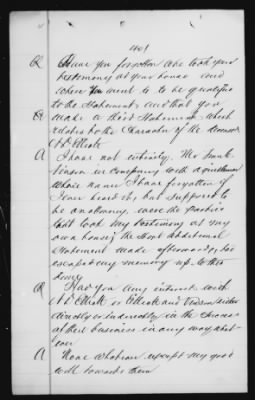 401
Q Have you forgotten who took your
testimony at your house and
where you went to to be qualified
to the statements and that you
Q make a third Statement which
relates to the Character of the
A I have not entirely. Mr Frank
in Company with a gentleman
whose name I have forgotten if
I ever heard it, but supposed to
be an attorney, were the parties
that took my testimony at my
own house, the Short additional
Statement made afterwards, has
escaped my memory up to this
time
Q Had you any interest with
directly or indirectly in the
of their business in any way what
ever
A None whatever except my good
will towards them